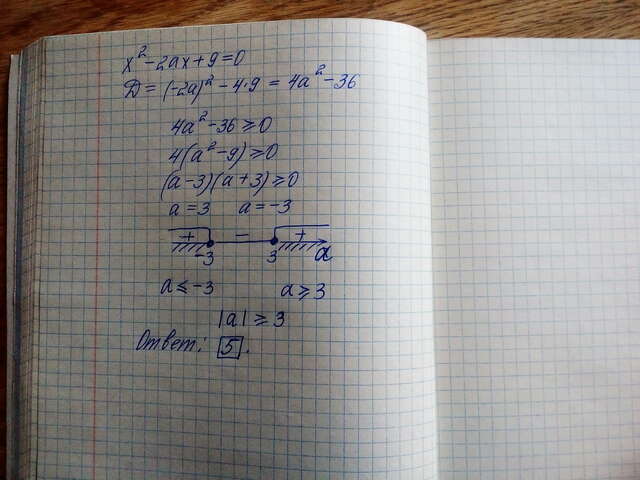 x² - 2ax + 9 = 0
D = (-2a)² - 4·9 = 4a² - 36
4a² - 36 ⩾ 0
4(a² - 9) ⩾ 0
(a - 3)(a + 3) ⩾ 0
a = 3 a = -3
+ - +
-3 3 a
a ⩽ -3 a ⩾ 3
|a| ⩾ 3
Ответ: 5.